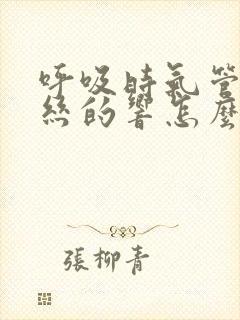 呼吸時氣管
絲的響怎麼
張柳青